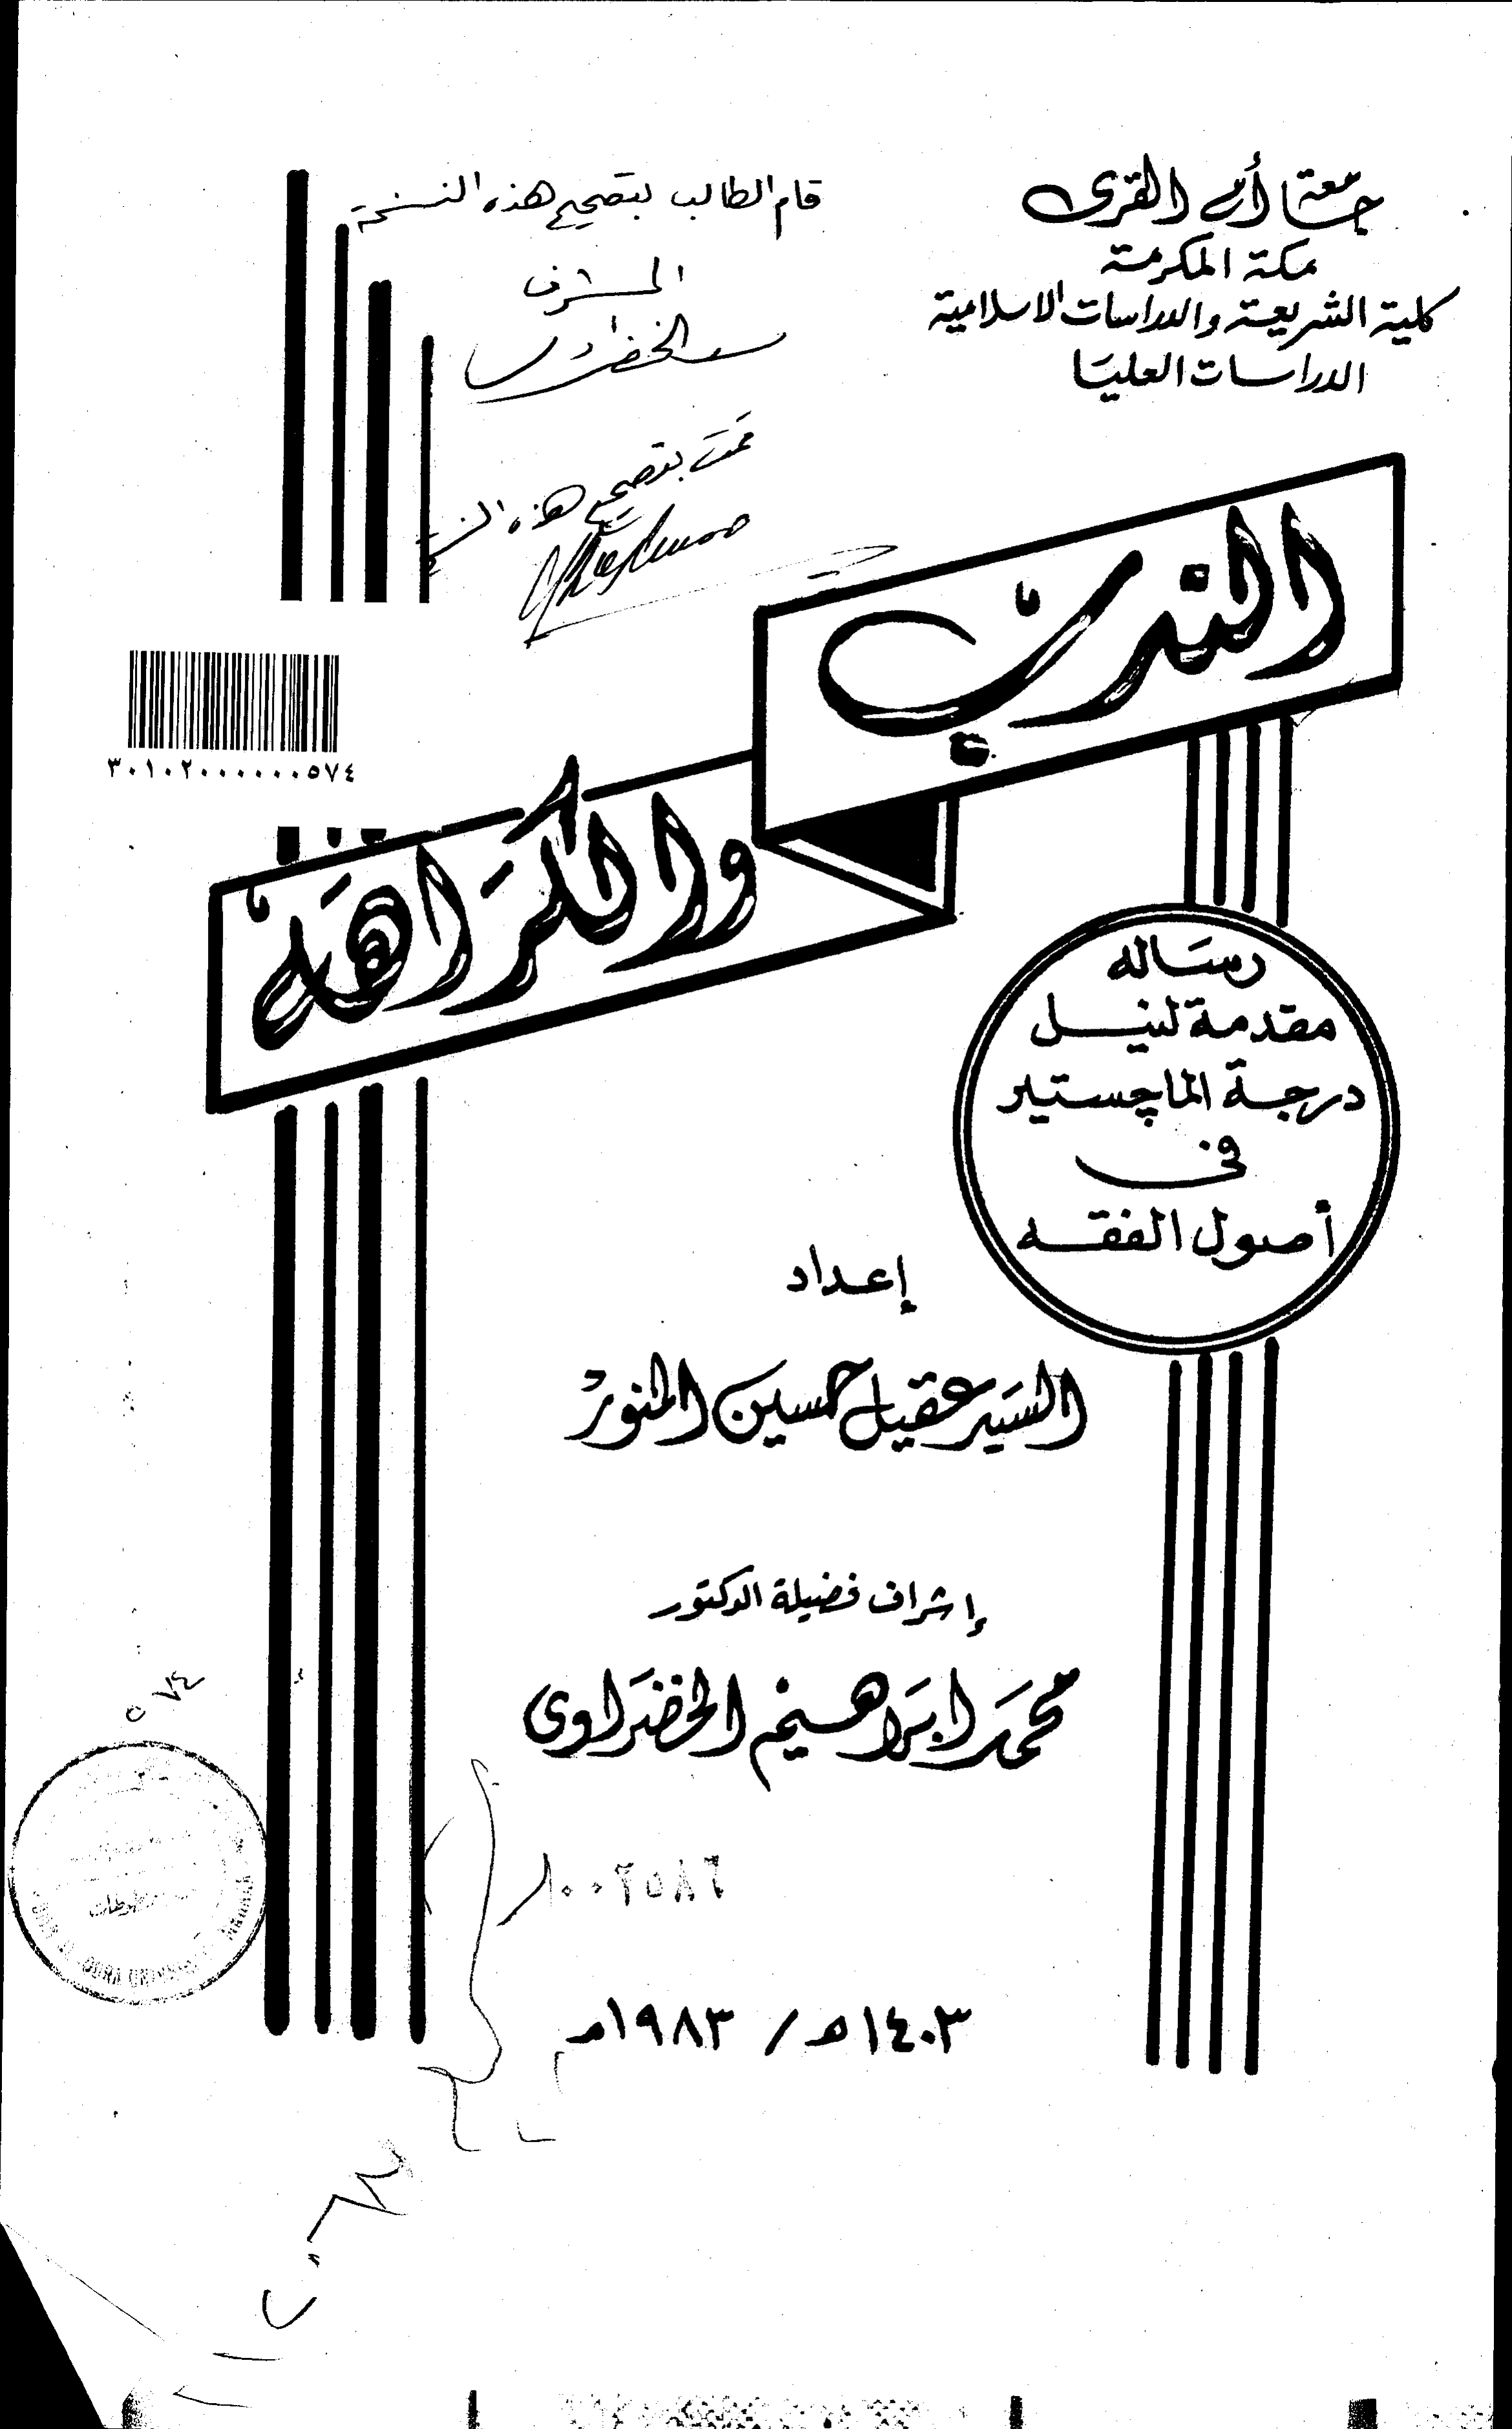 جامعة أم القرى
مكة المكرمة
كلية الشريعة والدراسات الاسلامية
الدراسات العليا
قام الطالب بتصحيح هذه النسخة
المشرف
الخضراوي
قمت بتصحيح هذه
٣٠١٠٢٠٠٠٠٠٠٥٧٤
الندب
والكراهة
رساله
مقدمة لنيل
درجة الماچستير
فى
أصول الفقه
إعداد
السيد عقيل حسين المنور
إشراف فضيلة الدكتور
محمد ابراهيم الخضراوى
٥٧٤
١٠٠٢٥٨٦
١٤٠٣ه / ١٩٨٣م